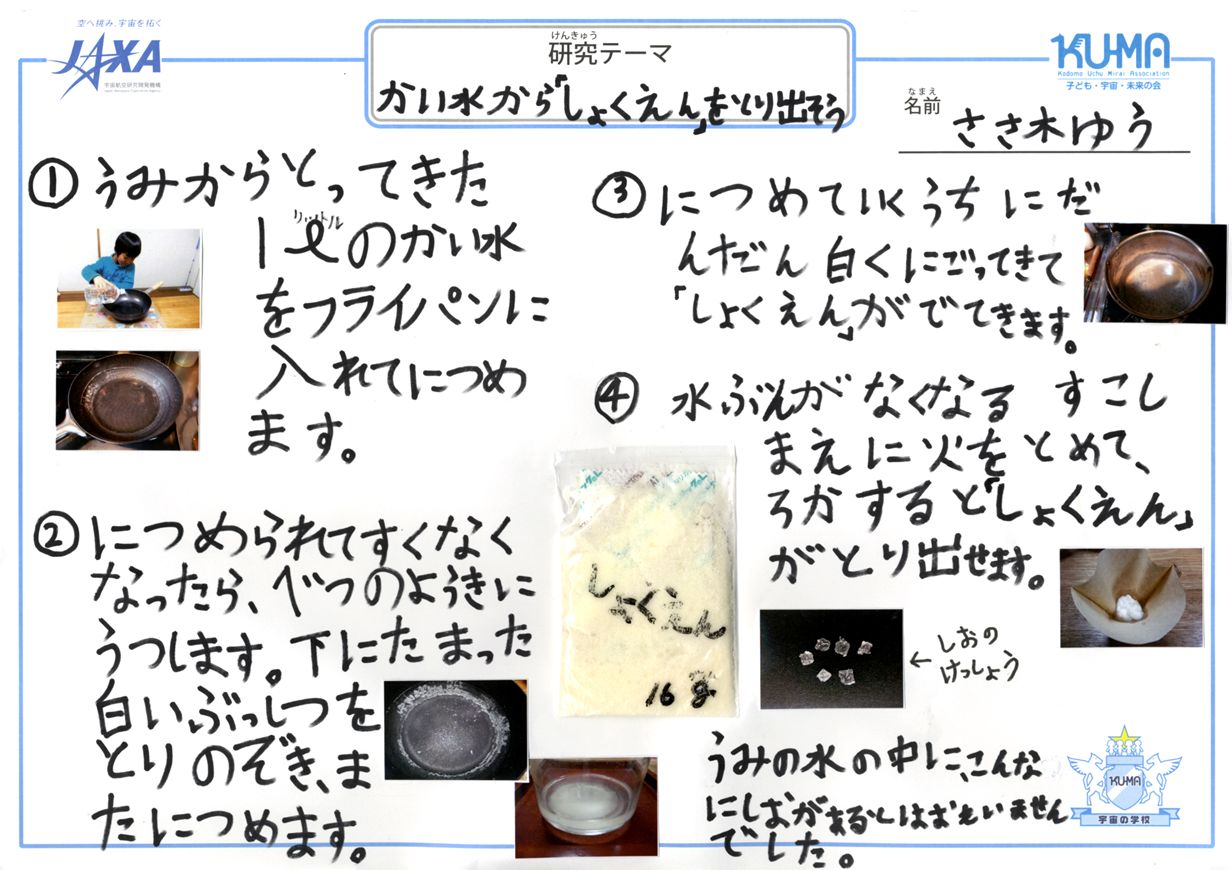 空へ挑み、宇宙を拓く
JAXA
宇宙航空研究開発機構
Japan Aerospace Exploration Agency
けんきゅう
研究テーマ
かい水から「しょくえん」をとり出そう
KU-MA
Kodomo Uchu Mirai Association
子ども・宇宙・未来の会
なまえ
名前
ささ木ゆう
① うみからとってきた
リットル
1ℓのかい水
をフライパンに
入れてにつめ
ます。
② につめられてすくなく
なったら、べつのようきに
うつします。下にたまった
白いぶっしつを
とりのぞき、ま
たにつめます。
③ につめていくうちにだ
んだん白くにごってきて
「しょくえん」がでてきます。
④ 水ぶんがなくなるすこし
まえに火をとめて、
ろかすると「しょくえん」
がとり出せます。
しょくえん
16g
←しおの
けっしょう
うみの水の中に、こんな
にしおがあるとはおもいません
でした。
KU-MA
宇宙の学校